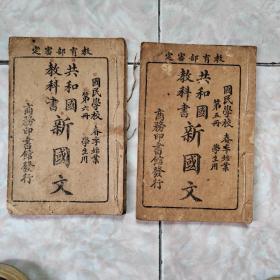 教育部審定
國民學校 春季始業
第六冊 學生用
共和國
教科書
新國文
商務印書館發行
教育部審定
國民學校 春季始業
第五冊 學生用
共和國
教科書
新國文
商務印書館發行